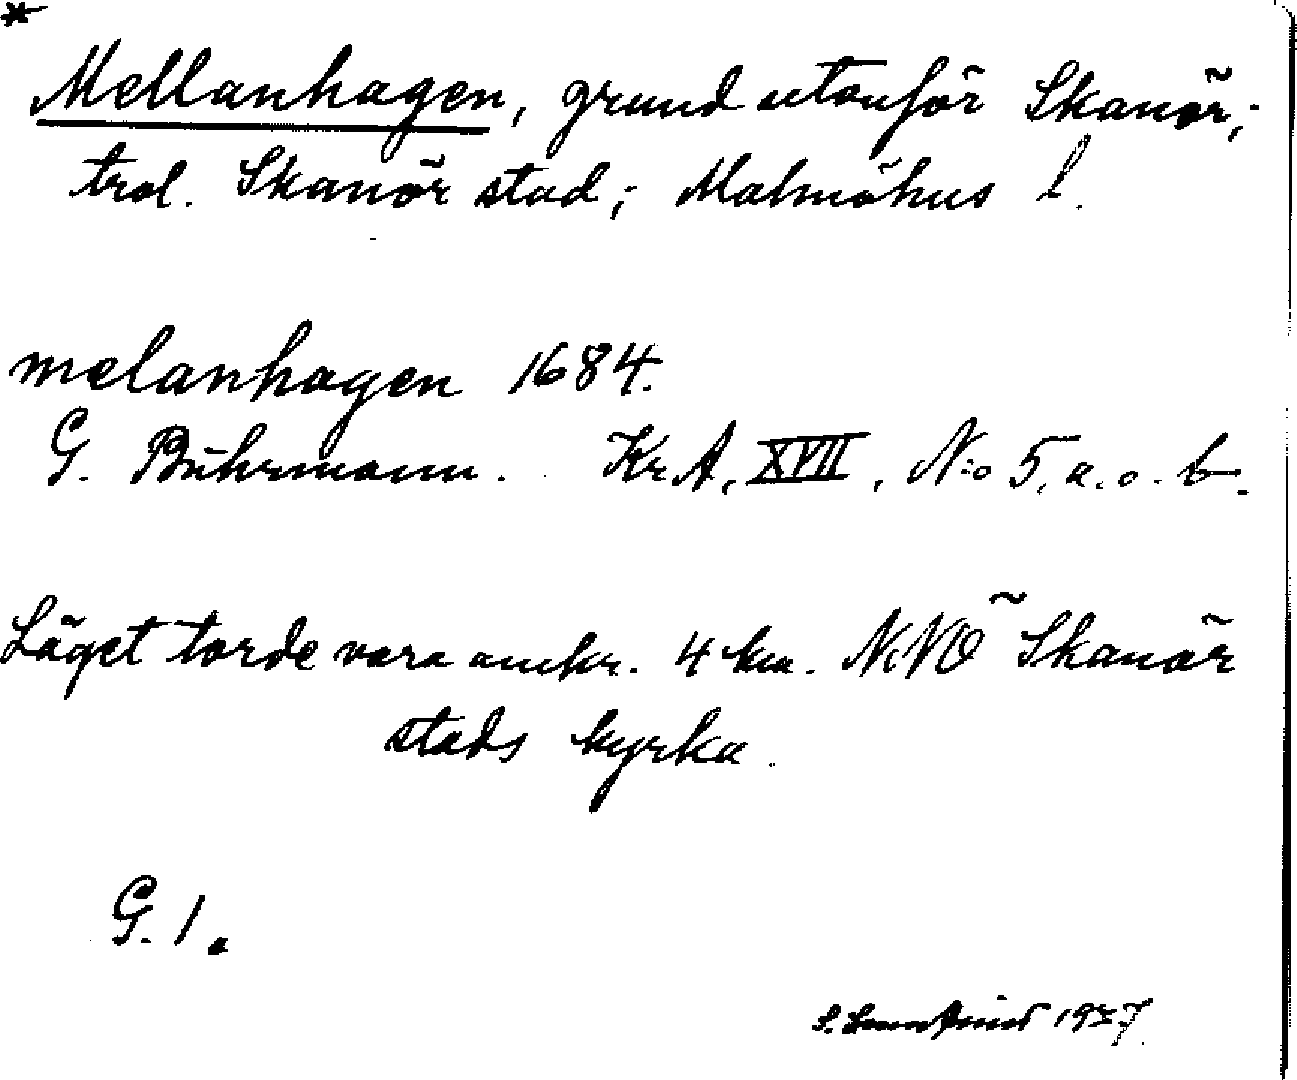 *
Mellanhagen, grund utanför Skanör,;
trol. Skanör stad; Malmöhus l.
melanhagen 1684.
G. Bührmann. Kr.A, XVII, N:o 5, a. o. b.
Läget torde vara omkr. 4 km. NNO Skanör
stads kyrka.
G. 1.
S. 19